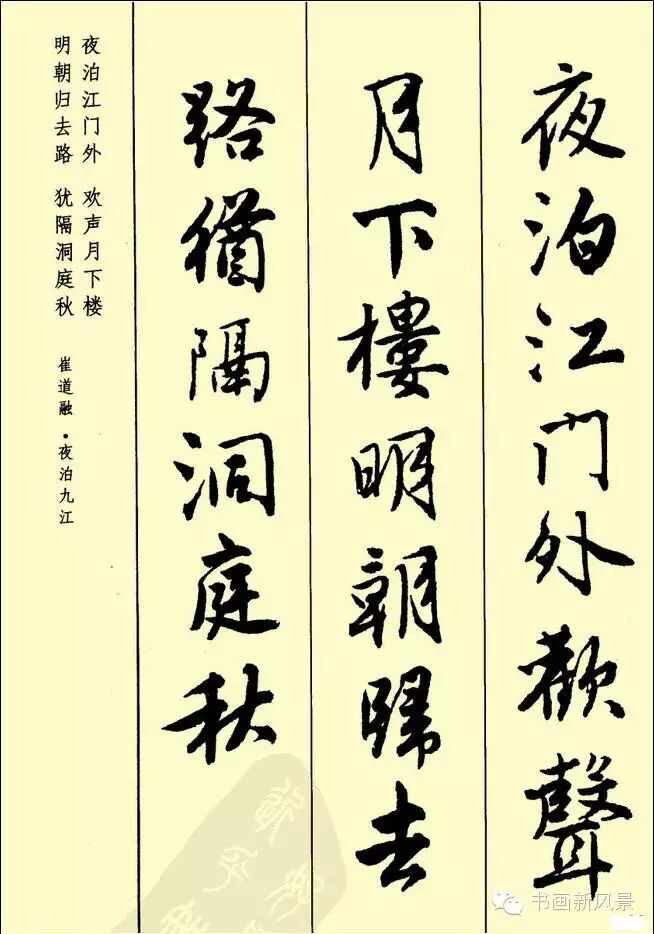 夜泊江门外歡聲
月下樓明朝歸去
路猶隔洞庭秋
夜泊江门外 欢声月下楼
明朝归去路 犹隔洞庭秋
崔道融·夜泊九江
书画新风景